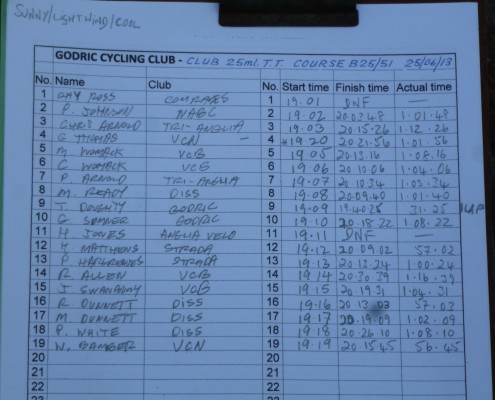 SUNNY/LIGHT WIND/COOL
GODRIC CYCLING CLUB - CLUB 25ml. T.T. COURSE B25/51 25/06/13
No. Name Club No. Start time Finish time Actual time
1 RAY ROSS COMRADES 1 19.01 DNF —
2 P. JOHNSON NACC 2 19.02 20.03.48 1.01.48
3 CHRIS ARNOLD TRI-ANGLIA 3 19.03 20.15.26 1.12.26
4 G THOMAS VCN 4 *19 20 20.21.56 1.01.56
5 M. WOMACK VCB 5 19 05 20.13.16 1.08.16
6 C WOMACK VCB 6 19 06 20.10.06 1.04.06
7 P. ARNOLD TRI-ANGLIA 7 19.07 20.10.34 1.03.34
8 M. READY DISS 8 19.08 20.09.40 1.01.40
9 T. DOUGHTY GODRIC 9 19.09 19.40.25 31.25 1LAP
10 G SUMNER GODRIC 10 19.10 20.18.22 1.08.22
11 H. JONES ANGLIA VELO 11 19.11 DNF —
12 MATTHEWS STRADA 12 19.12 20.09.02 57.02
13 P HARGREAVES STRADA 13 19.13 20.13.24 1.00.24
14 R ALLEN VCB 14 19.14 20.30.39 1.16.39
15 J. SWANBURY VCB 15 19.15 20.19.31 1.04.31
16 R DUNNETT DISS 16 19.16 20.13.03 57.03
17 M. DUNNETT DISS 17 19.17 20.19.09 1.02.09
18 P. WHITE DISS 18 19.18 20.26.10 1.08.10
19 W. BAMBER VCN 19 19.19 20.15.45 56.45
20 20
21 21
22 22
23 23